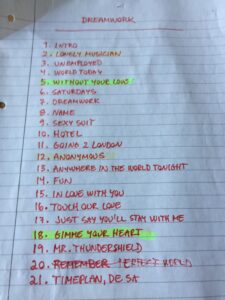 DREAMWORK
1. INTRO
2. LONELY MUSICIAN
3. UNEMPLOYED
4. WORLD TODAY
5. WITHOUT YOUR LOVE
6. SATURDAYS
7. DREAMWORK
8. NAME
9. SEXY SUIT
10. HOTEL
11. GOING 2 LONDON
12. ANONYMOUS
13. ANYWHERE IN THE WORLD TONIGHT
14. FUN
15. IN LOVE WITH YOU
16. TOUCH OUR LOVE
17. JUST SAY YOU'LL STAY WITH ME
18. GIMME YOUR HEART
19. MR. THUNDERSHIELD
20. REMEMBER PERFECT WORLD
21. TIMEPLAN, DE SA